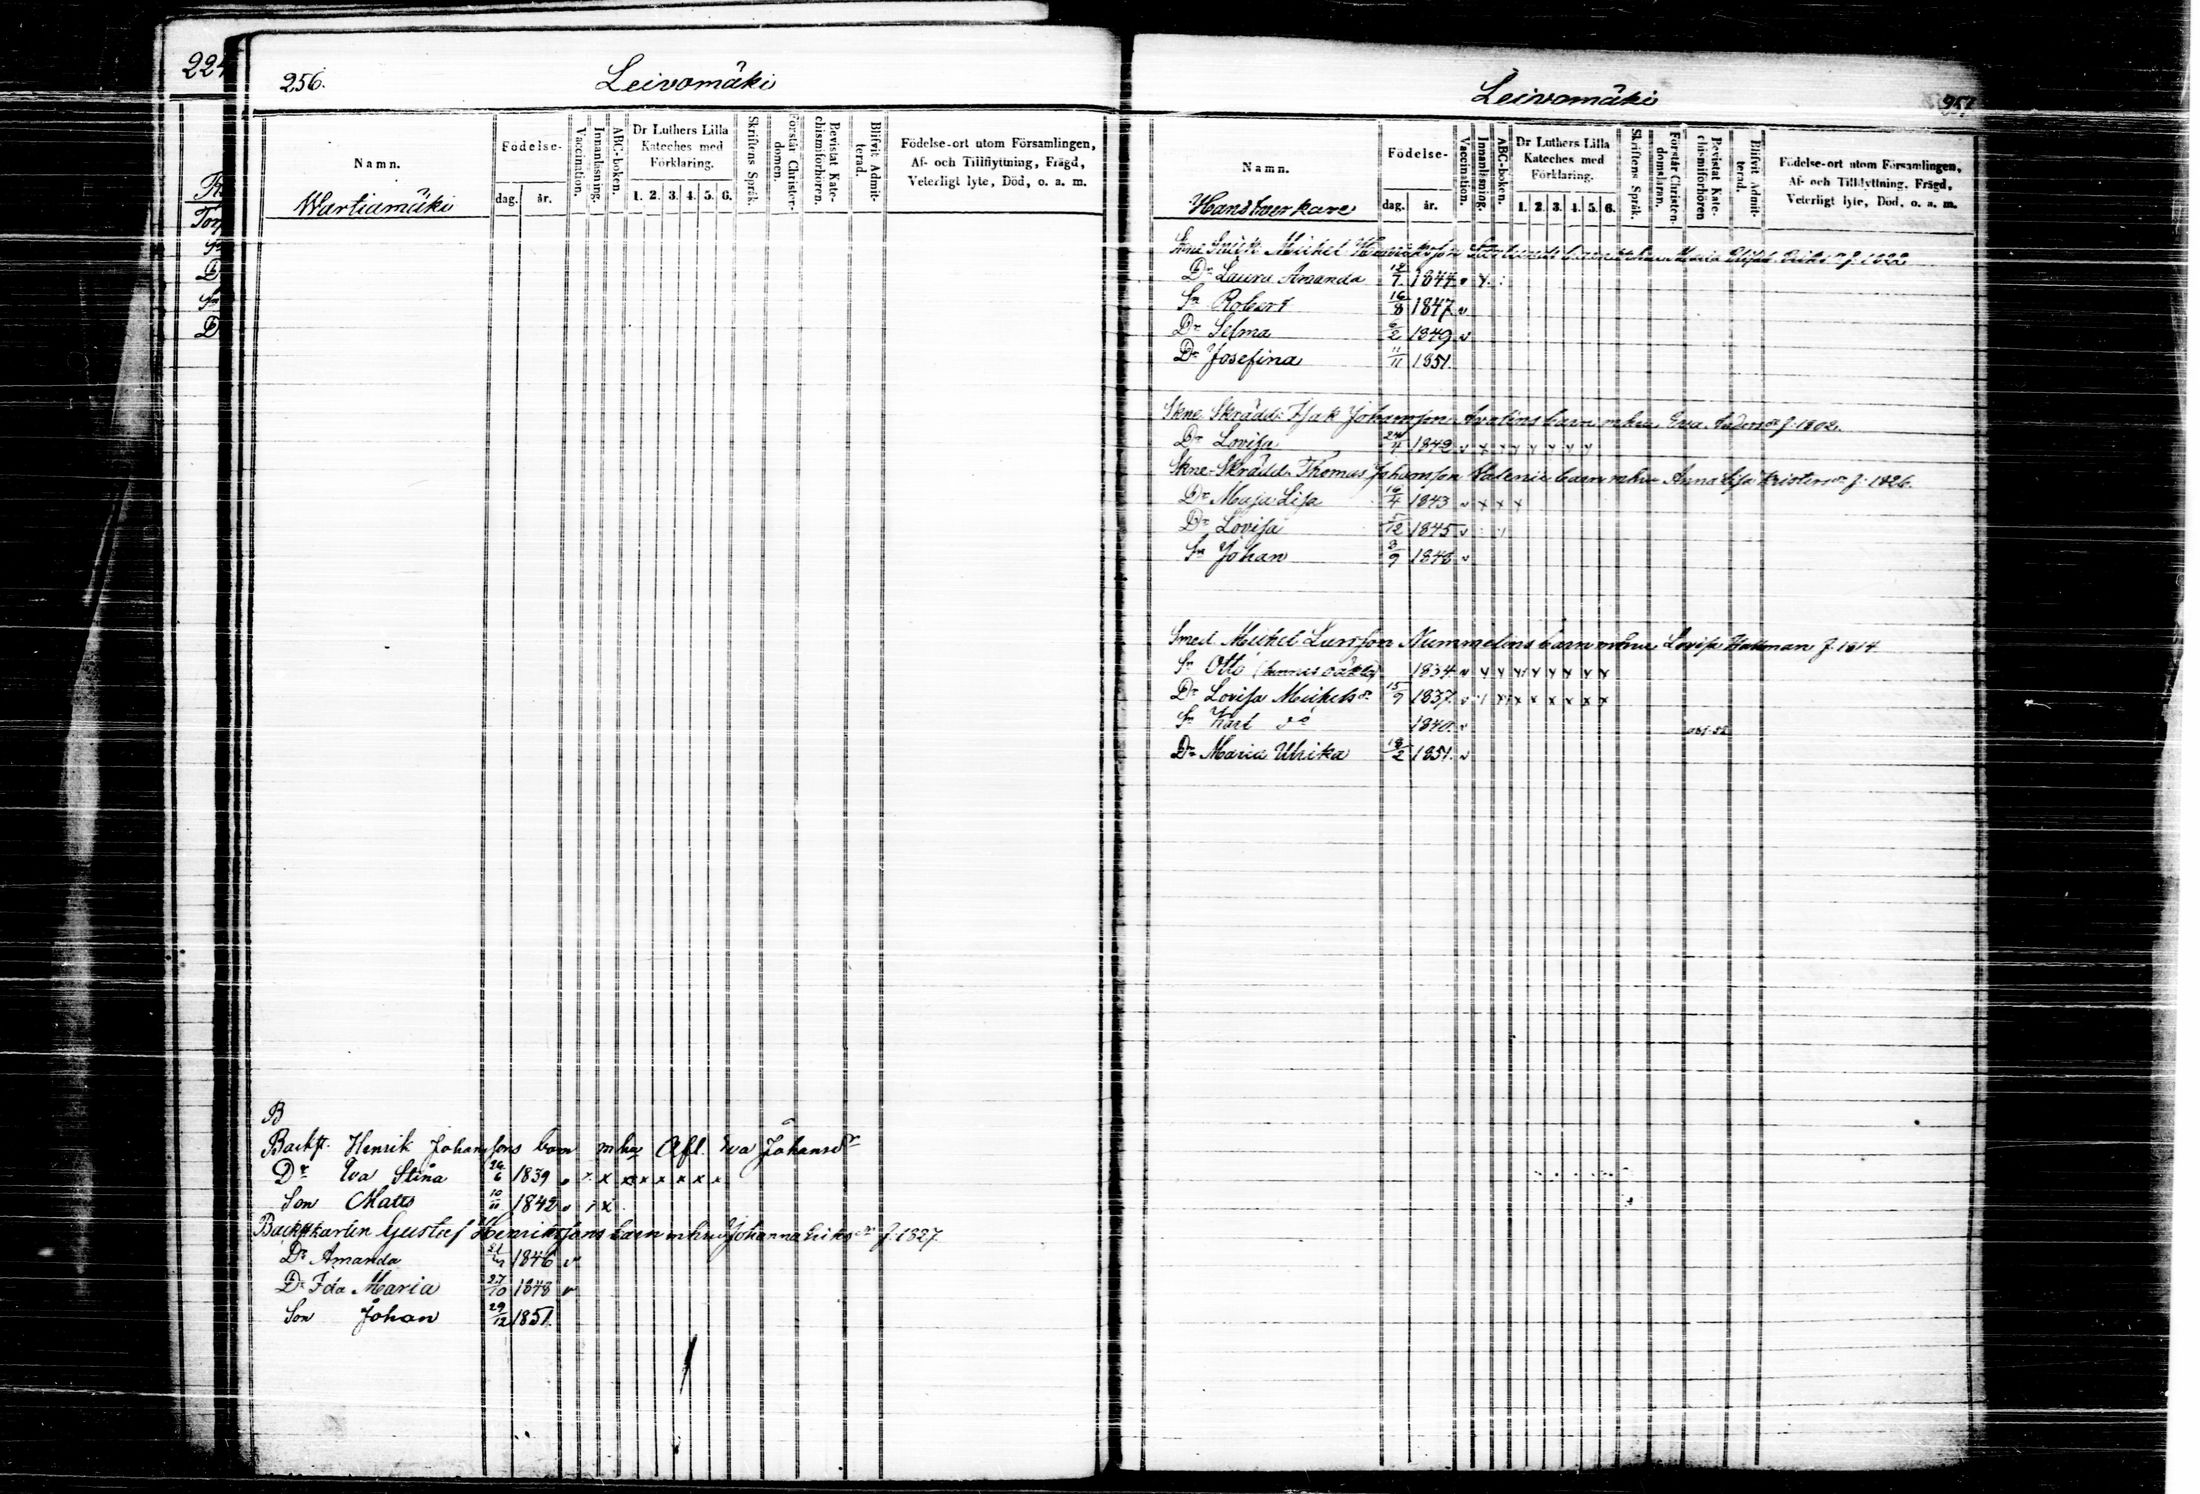 224
256.
Leivomäki
Namn.
Födelse-
dag. år.
Vaccination.
Innanläsning.
ABC-boken.
Dr Luthers Lilla
Kateches med
Förklaring.
1. 2. 3. 4. 5. 6.
Skriftens Språk.
Förstår Christen-
domen.
Bevistat Kate-
chismiförhören.
Blifvit Admit-
terad.
Födelse-ort utom Församlingen,
Af- och Tillflyttning, Frägd,
Veterligt lyte, Död, o. a. m.
Wartiamäki
B
Backst. Henrik Johanssons barn mhu Afl. Eva Johansdr
Dr Eva Stina 24/6 1839 v x x x x x x x x x
Son Matts 10/11 1842 v x x
Backstkarlen Gustaf Henrikssons barn mhu Johanna Eriksdr f. 1827
Dr Amanda 1846 v
Dr Ida Maria 27/10 1848 v
Son Johan 29/12 1851
Leivomäki
257
Namn.
Födelse-
dag. år.
Vaccination.
Innanläsning.
ABC-boken.
Dr Luthers Lilla
Kateches med
Förklaring.
1. 2. 3. 4. 5. 6.
Skriftens Språk.
Förstår Christen-
domslaran.
Bevistat Kate-
chismiförhören
Blifvit Admit-
terad.
Födelse-ort utom Församlingen,
Af- och Tillflyttning, Frägd,
Veterligt lyte, Död, o. a. m.
Handtverkare
Skne Snick. Mickel Henriksson f. 1822
Dr Laura Amanda 1844 v x
Sn Robert 16/8 1847 v
Dr Selma 6/2 1849 v
Dr Josefina 11/11 1851.
Skne Skrädd. Isak Johansson barn mhu Eva Andersdr f. 1802.
Dr Lovisa 24/4 1842 v x x x x x x x
Skne-Skrädd. Thomas Johansson barn mhu Anna Lisa Kristersdr f. 1826.
Dr Maja Lisa 16/4 1843 v x x x
Dr Lovisa 5/12 1845 v
Sn Johan 3/9 1848 v
Smed Mickel Larsson Nummelins barn mhu Lovisa f. 1814
Sn Otto 1834 v x x x x x x x x
Dr Lovisa Mickelsdr 15/9 1837 v x x x x x x x
Sn Karl do 1840. v
Dr Maria Ulrika 18/2 1851. v